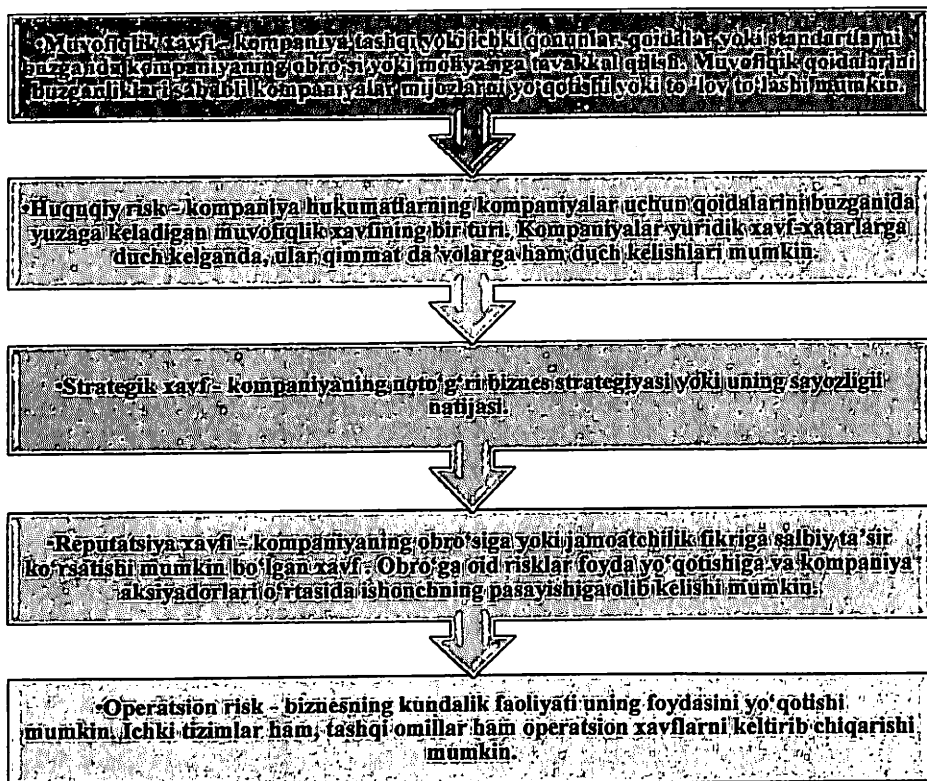 •Muvofiqlik xavfi - kompaniya tashqi yoki ichki qonunlar, qoidalar yoki standartlarni
buzganda kompaniyaning obro'si yoki moliyasiga tavakkal qilish. Muvofiqlik qoidalarini
buzganliklari sababli kompaniyalar mijozlarni yo'qotishi yoki to'lov to'lashi mumkin.
•Huquqiy risk - kompaniya hukumatlarning kompaniyalar uchun qoidalarini buzganida
yuzaga keladigan muvofiqlik xavfining bir turi. Kompaniyalar yuridik xavf-xatarlarga
duch kelganda, ular qimmat da'volarga ham duch kelishlari mumkin.
•Strategik xavf - kompaniyaning noto'g'ri biznes strategiyasi yoki uning sayozligii
natijasi.
•Reputatsiya xavfi - kompaniyaning obro'siga yoki jamoatchilik fikriga salbiy ta'sir
ko'rsatishi mumkin bo'lgan xavf. Obro'ga oid risklar foyda yo'qotishiga va kompaniya
aksiyadorlari o'rtasida ishonchning pasayishiga olib kelishi mumkin.
•Operatsion risk - biznesning kundalik faoliyati uning foydasini yo'qotishi
mumkin. Ichki tizimlar ham, tashqi omillar ham operatsion xavflarni keltirib chiqarishi
mumkin.